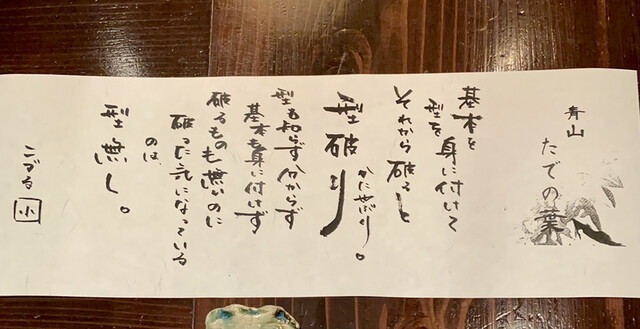 青山
たでの葉
基本を
身に付けて
型を
それから破ると
型破り
かたやぶり。
型も知らず分からず
基本も身に付けず
破るものも無いのに
破った気になっている
のは、
型無し。
こづる
小